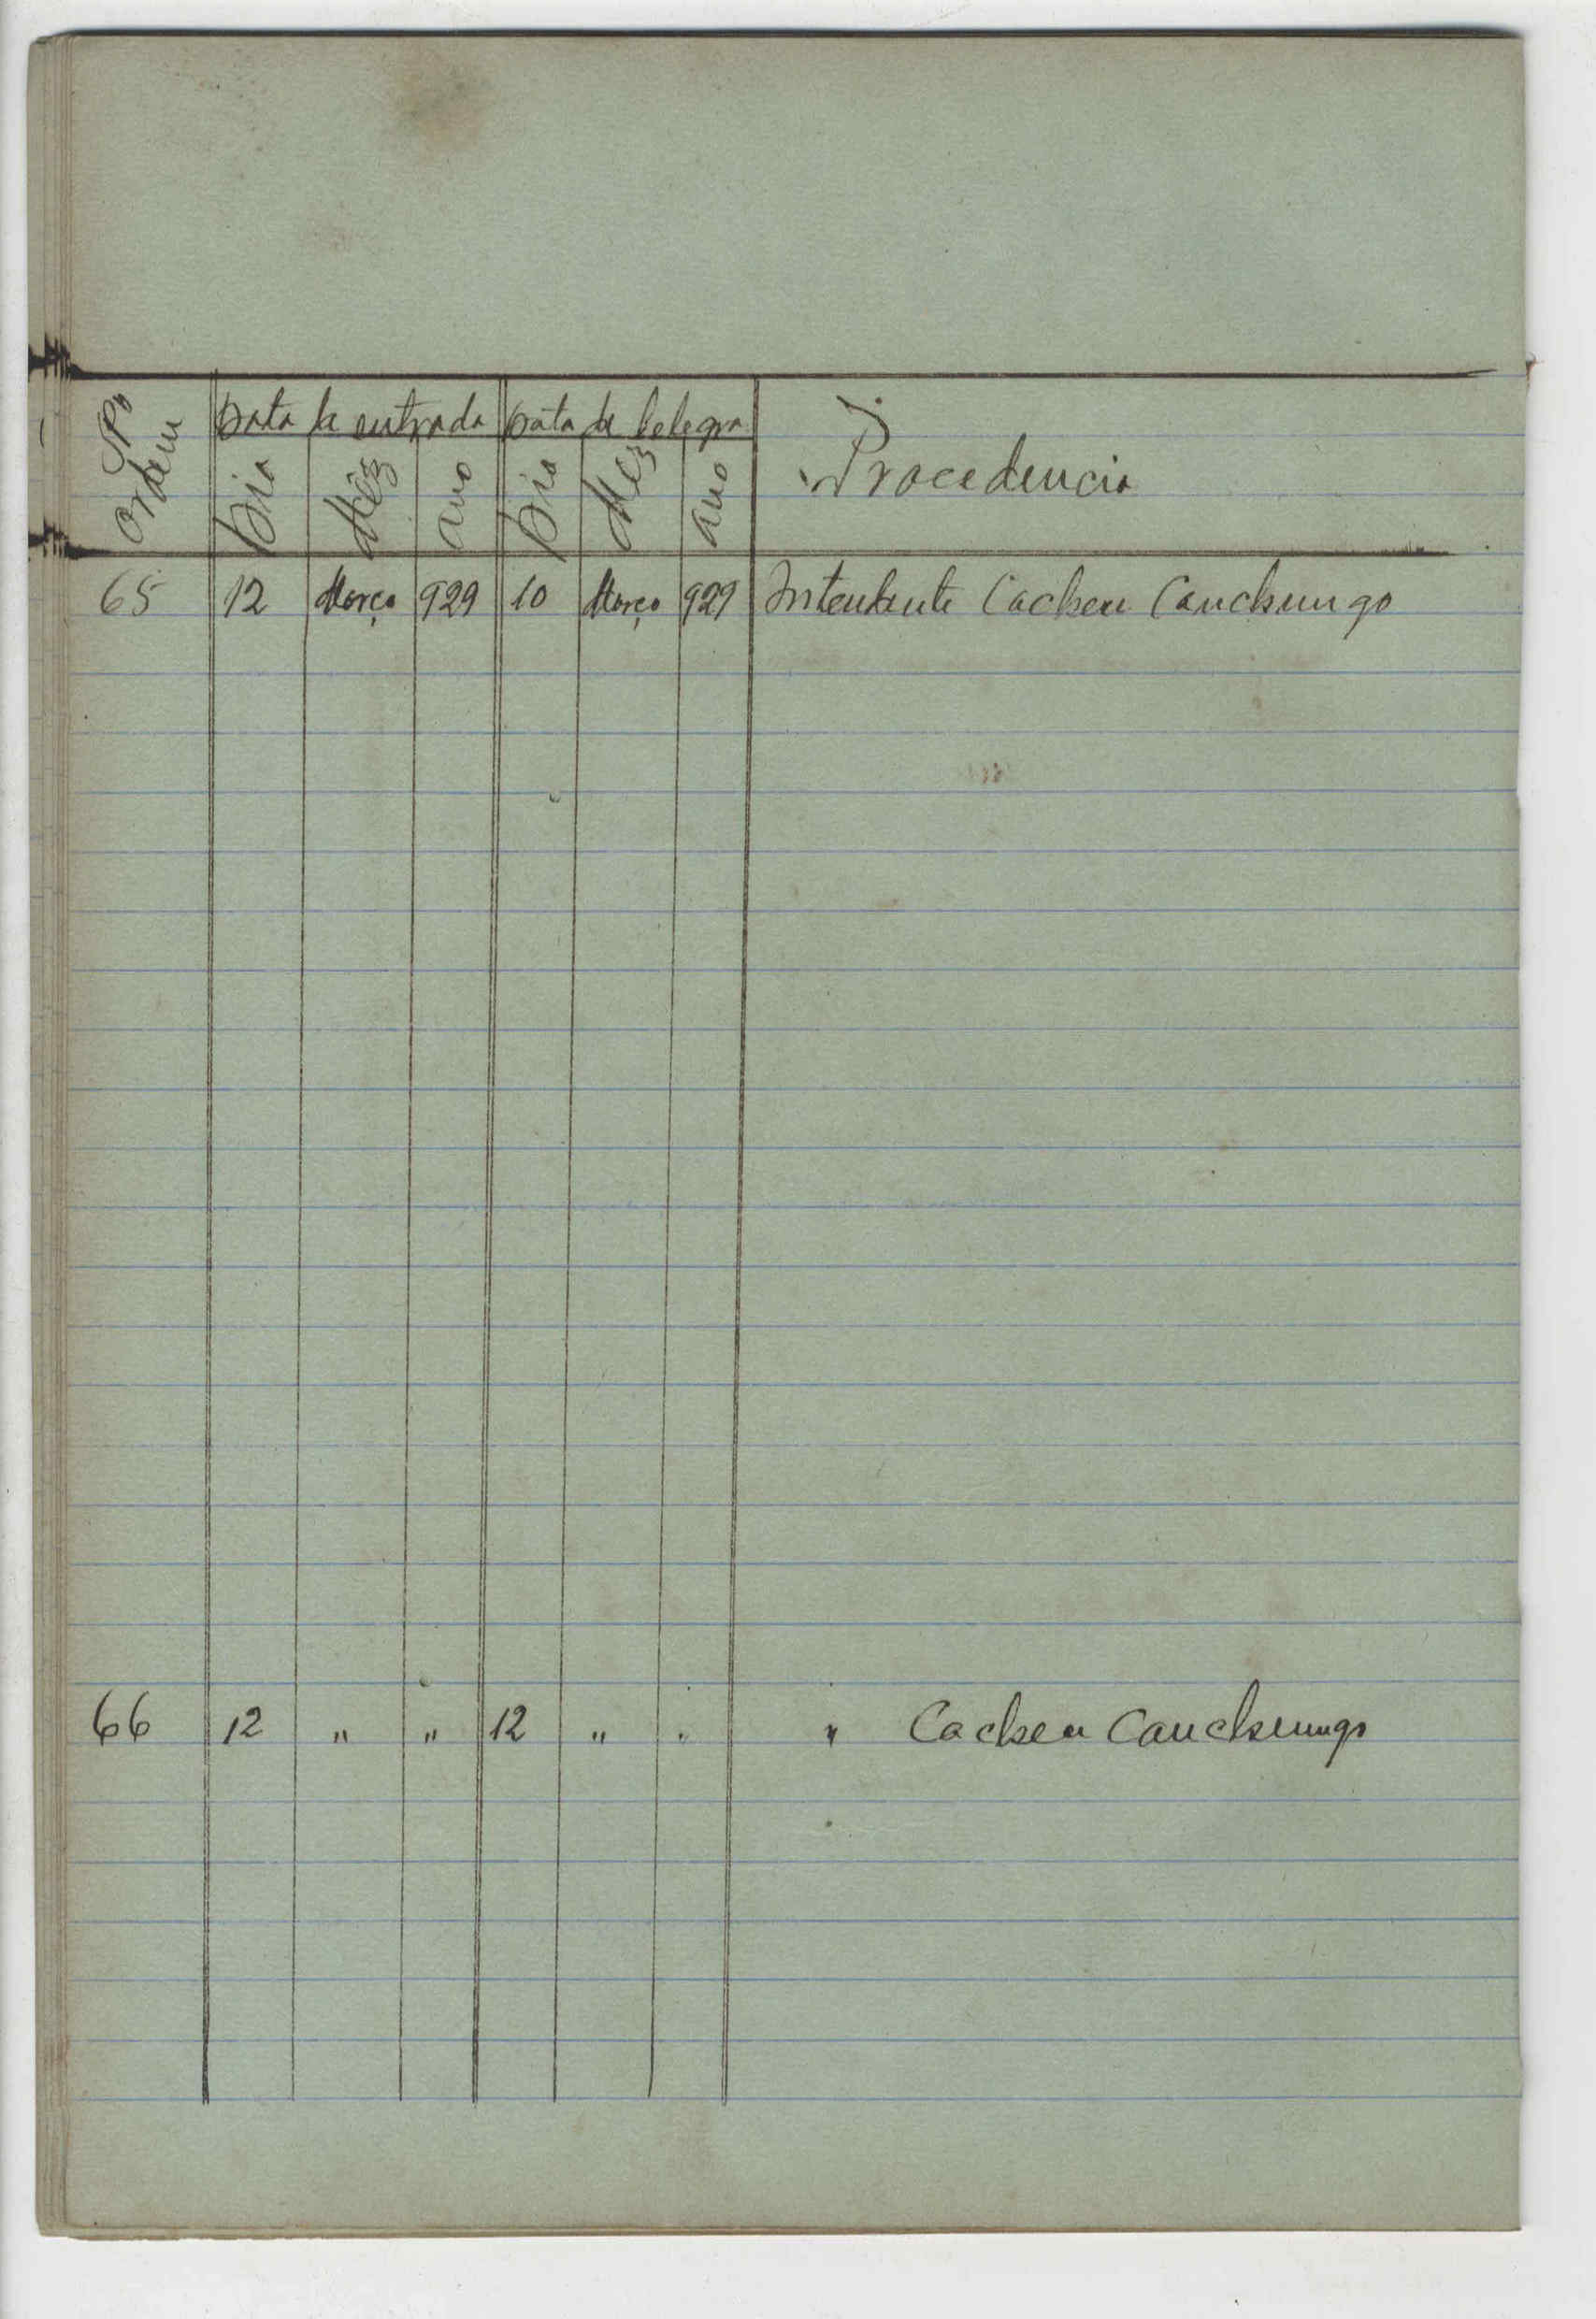 Nº Ordem Data de entrada Data de telegra Procedencia
Dia Mêz Ano Dia Mêz Ano
65 12 Março 929 10 Março 929 Intendente Cacheu Canchungo
66 12 " " 12 " " " Cacheu Canchungo